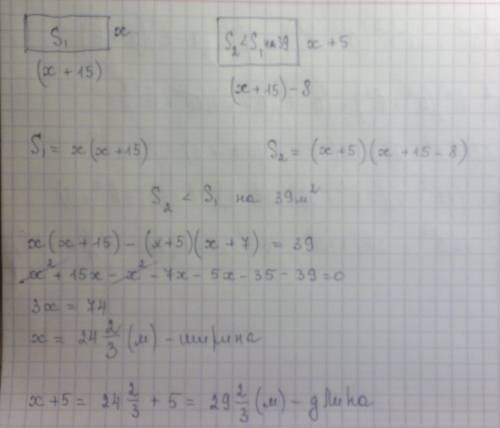 S₁ x
S₂ < S₁ на 39 x + 5
(x + 15)
(x + 15) - 8
S₁ = x(x + 15) S₂ = (x + 5)(x + 15 - 8)
S₂ < S₁ на 39 м²
x(x + 15) - (x + 5)(x + 7) = 39
x² + 15x - x² - 7x - 5x - 35 - 39 = 0
3x = 74
x = 24 2/3 (м) - ширина
x + 5 = 24 2/3 + 5 = 29 2/3 (м) - длина